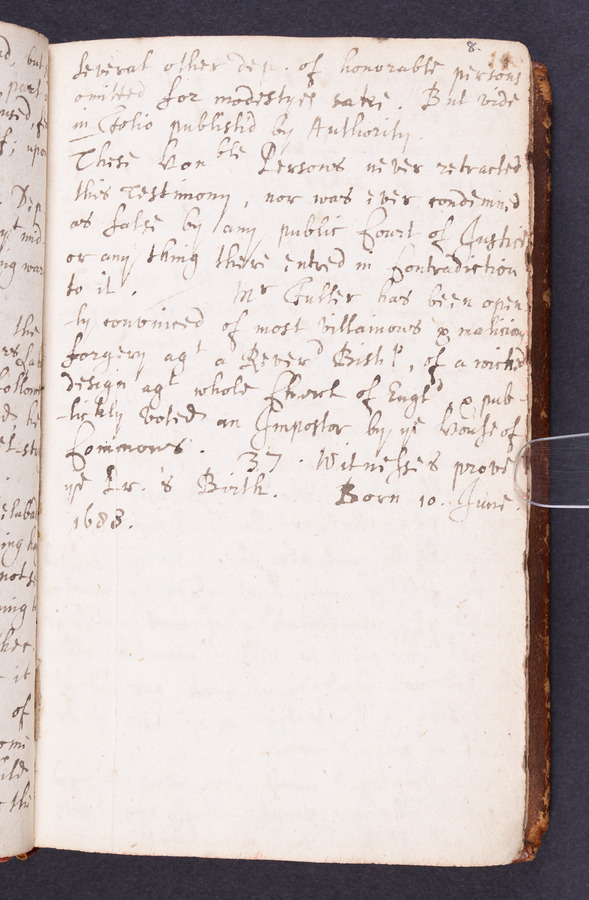 8.
several other dep. of honorable persons
omitted for modestyes sake. But vide
in Folio publish'd by Authority.
These Hon ble Persons never retracted
this Testimony, nor was ever condemned
as false by any public Court of Justice
or any thing there entred in Contradiction
to it. Mr Fuller has been open
-ly convinced of most villainous & malicious
forgery agt a Reverd Bishp, of a wicked
design agt whole Church of Engld, & pub-
-lickly voted an Impostor by ye House of
Commons. 37. Witnesses prove
ye Pr.'s Birth. Born 10. June.
1688.